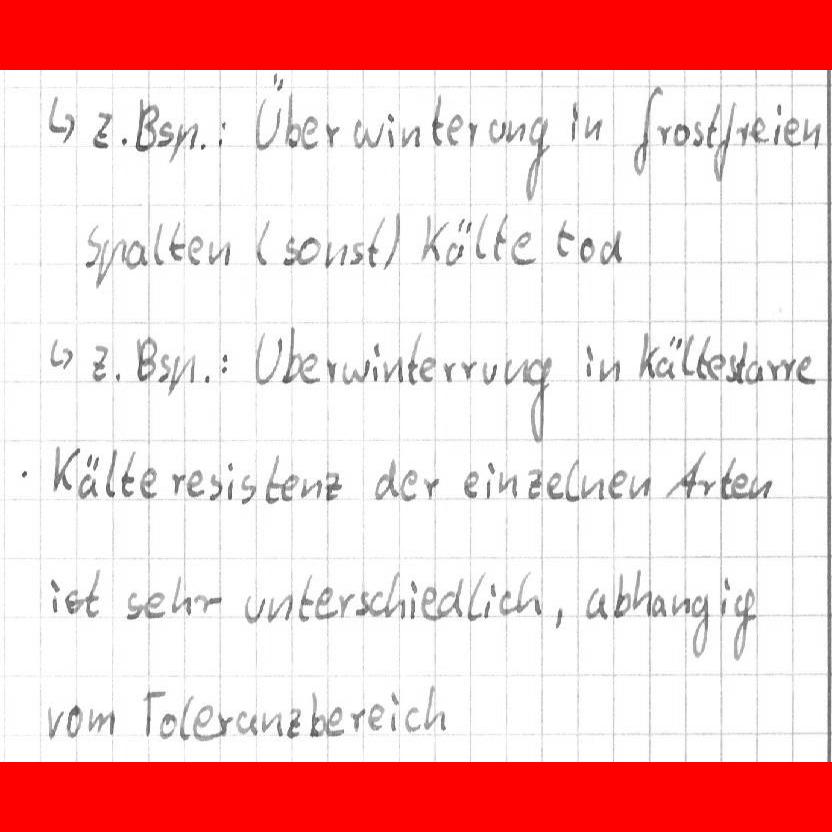 ↳ z.Bsp.: Überwinterung in frostfreien
Spalten (sonst) Kälte tod
↳ z. Bsp.: Uberwinterrung in Kältestarre
· Kälteresistenz der einzelnen Arten
ist sehr unterschiedlich, abhangig
vom Toleranzbereich